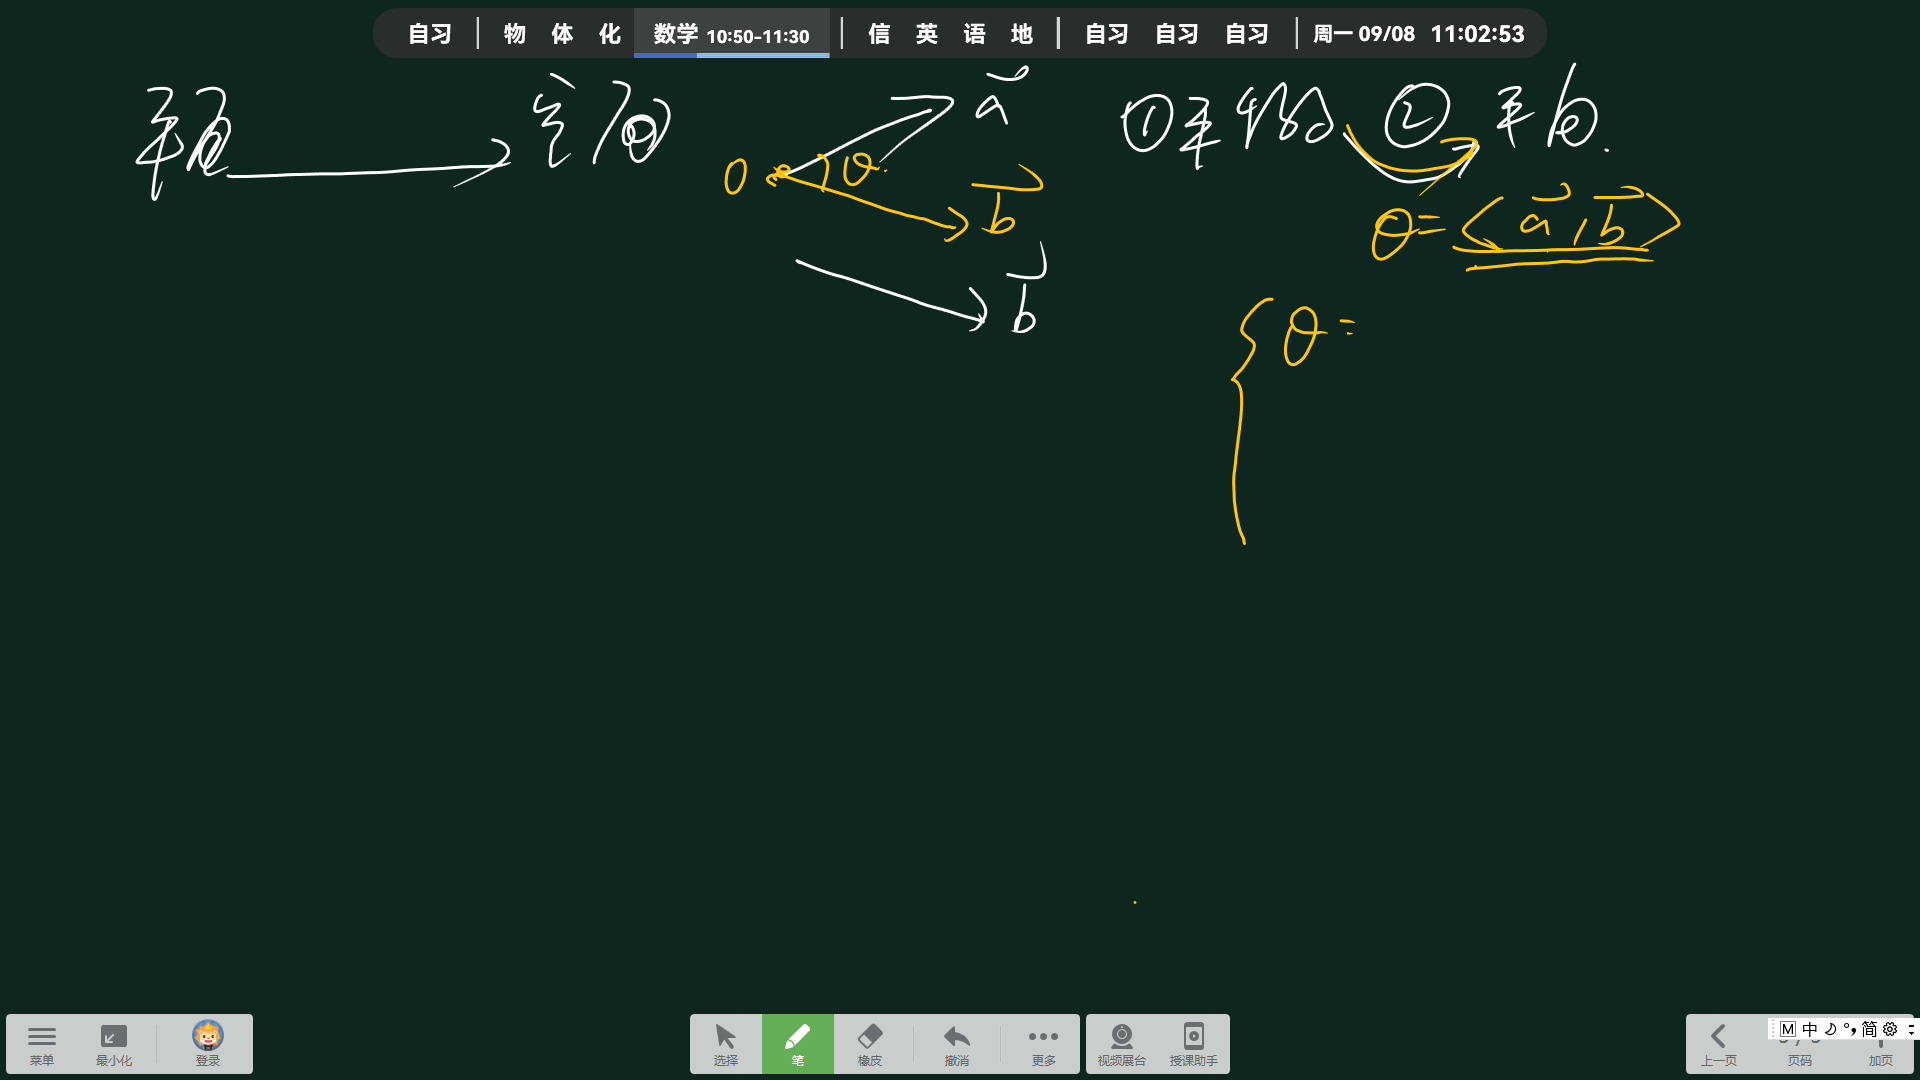 自习 | 物 体 化 数学 10:50-11:30 | 信 英 语 地 | 自习 自习 自习 | 周一 09/08 11:02:53
a
① ②
0 θ
b
θ=<a,b>
b
θ=
菜单 最小化 登录 选择 笔 橡皮 撤消 更多 视频展台 授课助手 上一页 页码 加页
M 中 简